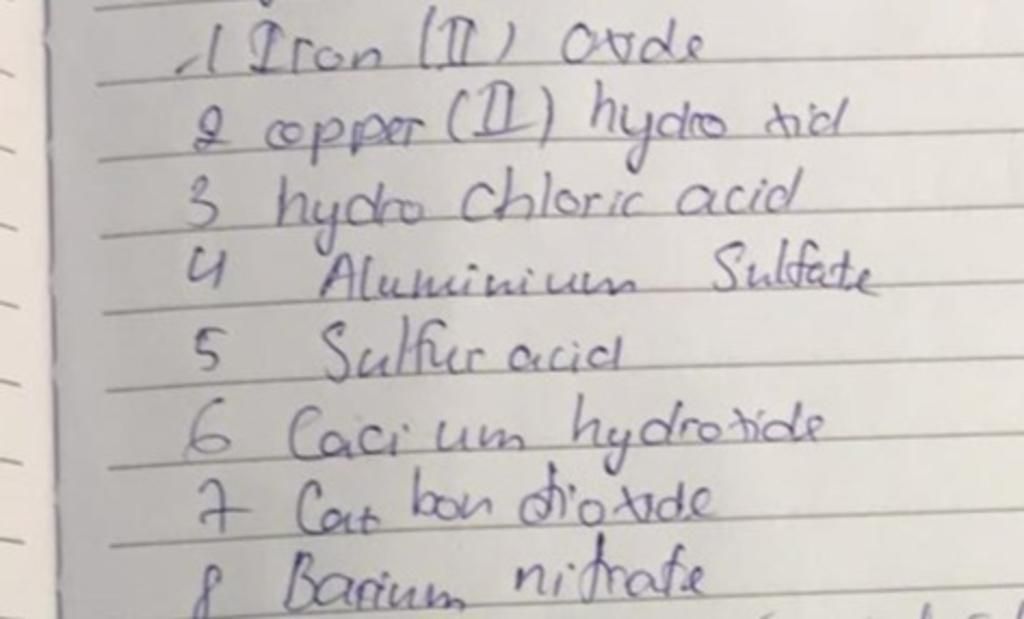 1 Iron (II) oxide
2 copper (II) hydro xid
3 hydro chloric acid
4 Aluminium Sulfate
5 Sulfur acid
6 Caci um hydroxide
7 Cat bon dioxide
8 Barium nitrate